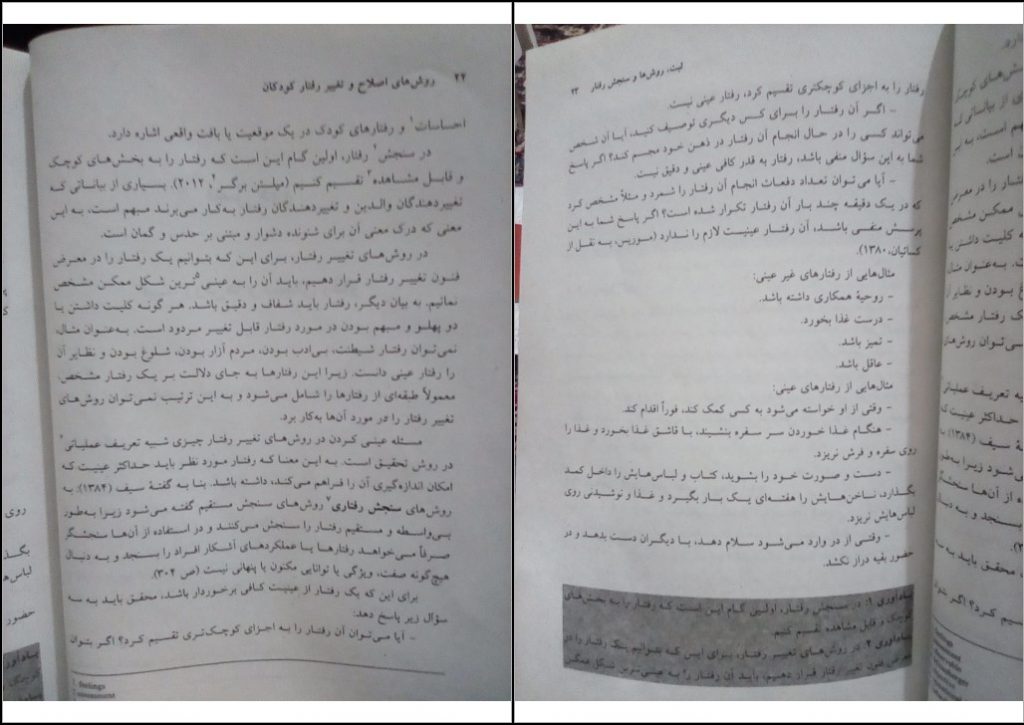 ۲۲ روش‌های اصلاح و تغییر رفتار کودکان
احساسات۱ و رفتارهای کودک در یک موقعیت یا بافت واقعی اشاره دارد.
در سنجش۲ رفتار، اولین گام این است که رفتار را به بخش‌های کوچک
و قابل مشاهده۳ تقسیم کنیم (میلتن برگر۴، ۲۰۱۲). بسیاری از بیاناتی که
تغییردهندگان والدین و تغییردهندگان رفتار به‌کار می‌برند مبهم است، به این
معنی که درک معنی آن برای شنونده دشوار و مبتنی بر حدس و گمان است.
در روش‌های تغییر رفتار، برای این که بتوانیم یک رفتار را در معرض
فنون تغییر رفتار قرار دهیم، باید آن را به عینی۵ترین شکل ممکن مشخص
نمائیم. به بیان دیگر، رفتار باید شفاف و دقیق باشد. هر گونه کلیت داشتن یا
دو پهلو و مبهم بودن در مورد رفتار قابل تغییر مردود است. به‌عنوان مثال،
نمی‌توان رفتار شیطنت، بی‌ادب بودن، مردم آزار بودن، شلوغ بودن و نظایر آن
را رفتار عینی دانست. زیرا این رفتارها به جای دلالت بر یک رفتار مشخص،
معمولاً طبقه‌ای از رفتارها را شامل می‌شود و به این ترتیب نمی‌توان روش‌های
تغییر رفتار را در مورد آن‌ها به‌کار برد.
مسئله عینی کردن در روش‌های تغییر رفتار چیزی شبیه تعریف عملیاتی۶
در روش تحقیق است. به این معنا که رفتار مورد نظر باید حداکثر عینیت که
امکان اندازه‌گیری آن را فراهم می‌کند، داشته باشد. بنا به گفتهٔ سیف (۱۳۸۴): به
روش‌های سنجش رفتاری۷ روش‌های سنجش مستقیم گفته می‌شود زیرا به‌طور
بی‌واسطه و مستقیم رفتار را سنجش می‌کنند و در استفاده از آن‌ها سنجشگر
صرفاً می‌خواهد رفتارها یا عملکردهای آشکار افراد را بسنجد و به دنبال
هیچ‌گونه صفت، ویژگی یا توانایی مکنون یا پنهانی نیست (ص ۳۰۴).
برای این که یک رفتار از عینیت کافی برخوردار باشد، محقق باید به سه
سؤال زیر پاسخ دهد:
- آیا می‌توان آن رفتار را به اجزای کوچک‌تری تقسیم کرد؟ اگر بتوان
feelings
روش‌ها و سنجش رفتار ۲۳
رفتار را به اجزای کوچکتری تقسیم کرد، رفتار عینی نیست.
- اگر آن رفتار را برای کس دیگری توصیف کنید، آیا آن شخص
می‌تواند کسی را در حال انجام آن رفتار در ذهن خود مجسم کند؟ اگر پاسخ
شما به این سؤال منفی باشد، رفتار به قدر کافی عینی و دقیق نیست.
- آیا می‌توان تعداد دفعات انجام آن رفتار را شمرد و مثلاً مشخص کرد
که در یک دقیقه چند بار آن رفتار تکرار شده است؟ اگر پاسخ شما به این
پرسش منفی باشد، آن رفتار عینیت لازم را ندارد (موریس، به نقل از
کسائیان، ۱۳۸۰).
مثال‌هایی از رفتارهای غیر عینی:
- روحیهٔ همکاری داشته باشد.
- درست غذا بخورد.
- تمیز باشد.
- عاقل باشد.
مثال‌هایی از رفتارهای عینی:
- وقتی از او خواسته می‌شود به کسی کمک کند، فوراً اقدام کند.
- هنگام غذا خوردن سر سفره بنشیند، با قاشق غذا بخورد و غذا را
روی سفره و فرش نریزد.
- دست و صورت خود را بشوید، کتاب و لباس‌هایش را داخل کمد
بگذارد، ناخن‌هایش را هفته‌ای یک بار بگیرد و غذا و نوشیدنی روی
لباس‌هایش نریزد.
- وقتی از در وارد می‌شود سلام دهد، با دیگران دست بدهد و در
حضور بقیه دراز نکشد.
یادآوری ۱: در سنجش رفتار، اولین گام این است که رفتار را به بخش‌های
کوچک و قابل مشاهده تقسیم کنیم.
یادآوری ۲: در روش‌های تغییر رفتار، برای این که بتوانیم یک رفتار را در
معرض فنون تغییر رفتار قرار دهیم، باید آن را به عینی‌ترین شکل ممکن